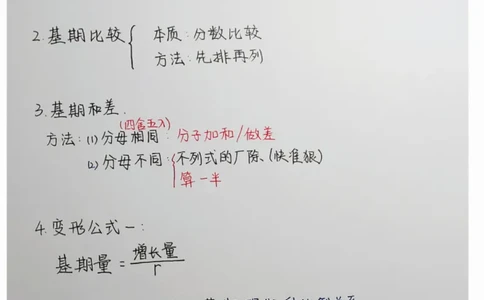 2.基期比较{ 本质:分数比较
方法:先排再列
3.基期和差.
(四舍五入)
方法:(1)分母相同:分子加和/做差
(2)分母不同:{不列式的厂除、(快准狠)
算一半
4.变形公式一:
基期量=增长量/r